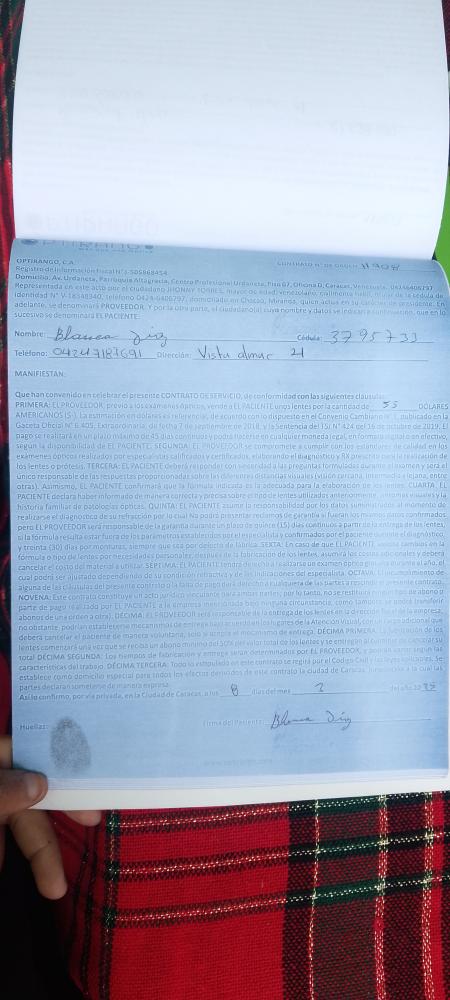 OPTIRANGO
OPTIRANGO, C.A. CONTRATO N° DE ORDEN 11908
Registro de Información Fiscal N° J-505868454
Domicilio: Av. Urdaneta, Parroquia Altagracia, Centro Profesional Urdaneta, Piso 07, Oficina D, Caracas, Venezuela. 04246406297
Representada en este acto por el ciudadano JHONNY TORRES, mayor de edad, venezolano, civilmente hábil, titular de la cédula de
identidad N° V-18348340, teléfono 0424-6406297, domiciliado en Chacao, Miranda, quien actúa en su carácter de presidente. En
adelante, se denominará PROVEEDOR. Y por la otra parte, el ciudadano(a) cuyo nombre y datos se indican a continuación, que en lo
sucesivo se denominará EL PACIENTE.
Nombre: Blanca Díaz Cédula: 3795733
Teléfono: 04247187691 Dirección: Vista 21
MANIFIESTAN:
Que han convenido en celebrar el presente CONTRATO DE SERVICIO, de conformidad con las siguientes cláusulas:
PRIMERA: EL PROVEEDOR, previo a los exámenes ópticos, vende a EL PACIENTE unos lentes por la cantidad de 55 DÓLARES
AMERICANOS ($-). La estimación en dólares es referencial, de acuerdo con lo dispuesto en el Convenio Cambiario N° 1, publicado en la
Gaceta Oficial N° 6.405, Extraordinaria, de fecha 7 de septiembre de 2018, y la Sentencia del TSJ N° 424 del 16 de octubre de 2019. El
pago se realizará en un plazo máximo de 45 días continuos y podrá hacerse en cualquier moneda legal, en forma digital o en efectivo,
según la disponibilidad de EL PACIENTE. SEGUNDA: EL PROVEEDOR se compromete a cumplir con los estándares de calidad en los
exámenes ópticos realizados por especialistas calificados y certificados, elaborando el diagnóstico y RX prescrito para la realización de
los lentes o prótesis. TERCERA: EL PACIENTE deberá responder con sinceridad a las preguntas formuladas durante el examen y será el
único responsable de las respuestas proporcionadas sobre las diferentes distancias visuales (visión cercana, intermedia, lejana, entre
otras). Asimismo, EL PACIENTE confirmará que la fórmula indicada es la adecuada para la elaboración de los lentes. CUARTA: EL
PACIENTE declara haber informado de manera correcta y precisa sobre el tipo de lentes utilizados anteriormente, síntomas visuales y la
historia familiar de patologías ópticas. QUINTA: EL PACIENTE asume la responsabilidad por los datos suministrados al momento de
realizarse el diagnóstico de su refracción por lo cual No podrá presentar reclamos de garantía si fueran los mismos datos confirmados,
pero EL PROVEEDOR será responsable de la garantía durante un plazo de quince (15) días continuos a partir de la entrega de los lentes,
si la fórmula resulta estar fuera de los parámetros establecidos por el especialista y confirmados por el paciente durante el diagnóstico,
y treinta (30) días por monturas, siempre que sea por defecto de fábrica. SEXTA: En caso de que EL PACIENTE solicite cambios en la
fórmula o tipo de lentes por necesidades personales, después de la fabricación de los lentes, asumirá los costos adicionales y deberá
cancelar el costo del material a utilizar. SÉPTIMA: EL PACIENTE tendrá derecho a realizarse un examen óptico gratuito durante el año, el
cual podrá ser ajustado dependiendo de su condición refractiva y de las indicaciones del especialista. OCTAVA: El incumplimiento de
alguna de las cláusulas del presente contrato o la falta de pago dará derecho a cualquiera de las partes a rescindir el presente contrato.
NOVENA: Este contrato constituye un acto jurídico vinculante para ambas partes; por lo tanto, no se restituirá ningún monto de abono o
parte de pago realizado por EL PACIENTE a la empresa mencionada bajo ninguna circunstancia, como tampoco, se podrá transferir
abonos de una orden a otra). DÉCIMA: EL PROVEEDOR será responsable de la entrega de los lentes en la dirección fiscal de la empresa,
no obstante, podrían establecerse mecanismos de entrega bajo acuerdo en lugares de la Atención Visual, con un pago adicional que
deberá cancelar el paciente de manera voluntaria, solo si acepta el mecanismo de entrega. DÉCIMA PRIMERA: La fabricación de los
lentes comenzará una vez que se reciba un abono mínimo del 50% del valor total de los lentes y se entregará al momento de cancelar su
total. DÉCIMA SEGUNDA: Los tiempos de fabricación y entrega serán determinados por EL PROVEEDOR, y podrán variar según las
características del trabajo. DÉCIMA TERCERA: Todo lo estipulado en este contrato se regirá por el Código Civil y las leyes aplicables. Se
establece como domicilio especial para todos los efectos derivados de este contrato la ciudad de Caracas, jurisdicción a la cual las
partes declaran someterse de manera expresa.
Así lo confirmo, por vía privada, en la Ciudad de Caracas, a los 8 días del mes 2 del año 2025
Huellas: Firma del Paciente: Blanca Díaz
www.optirango.com